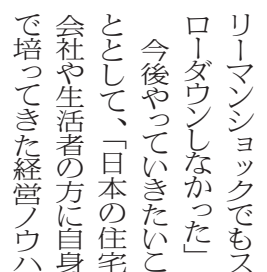 リーマンショックでもス
ローダウンしなかった」
　今後やっていきたいこ
ととして、「日本の住宅
会社や生活者の方に自身
で培ってきた経営ノウハ